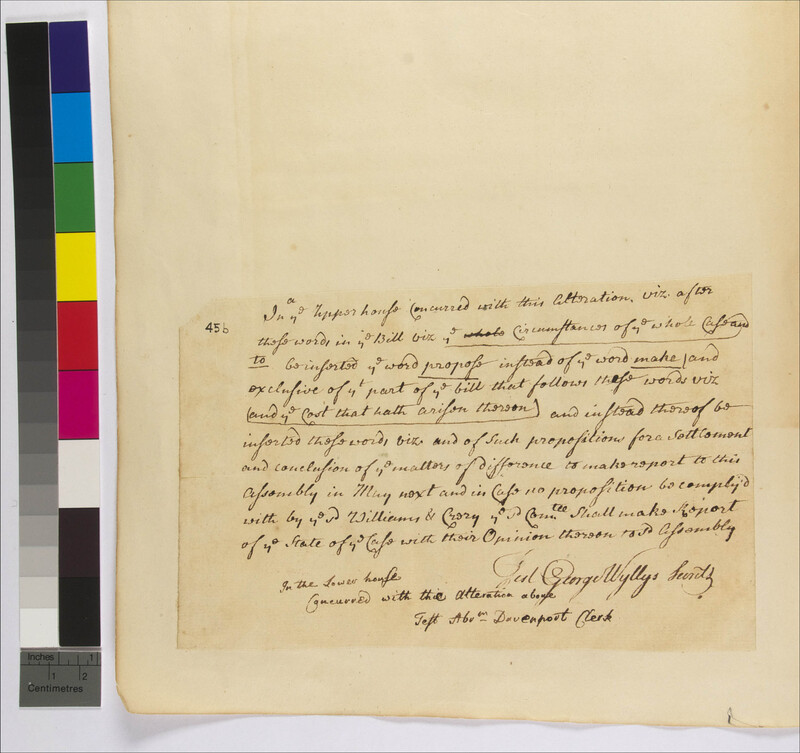 45b
In yᵉ Upper house Concurred with this Alteration. viz. after
these words in yᵉ Bill viz yᵉ whole Circumstances of yᵉ whole Case and
to be inserted yᵉ word propose instead of yᵉ word make (and
exclusive of yᵗ part of yᵉ bill that follows these words viz
(and yᵉ Cost that hath arisen thereon) and instead thereof be
inserted these words viz. and of Such propositions for a Settlement
and conclusion of yᵉ matters of difference to make report to this
Assembly in May next and in Case no proposition be comply'd
with by yᵉ sᵈ Williams & Crery yᵉ sᵈ Comᵗᵉᵉ Shall make Report
of yᵉ State of yᵉ Case with their Opinion thereon to sᵈ Assembly
Test George Wyllys Secretʸ
In the Lower house
Concurred with the Alteration above
Test Abrᵐ Davenport Clerk
Inches 1
1 2
Centimetres